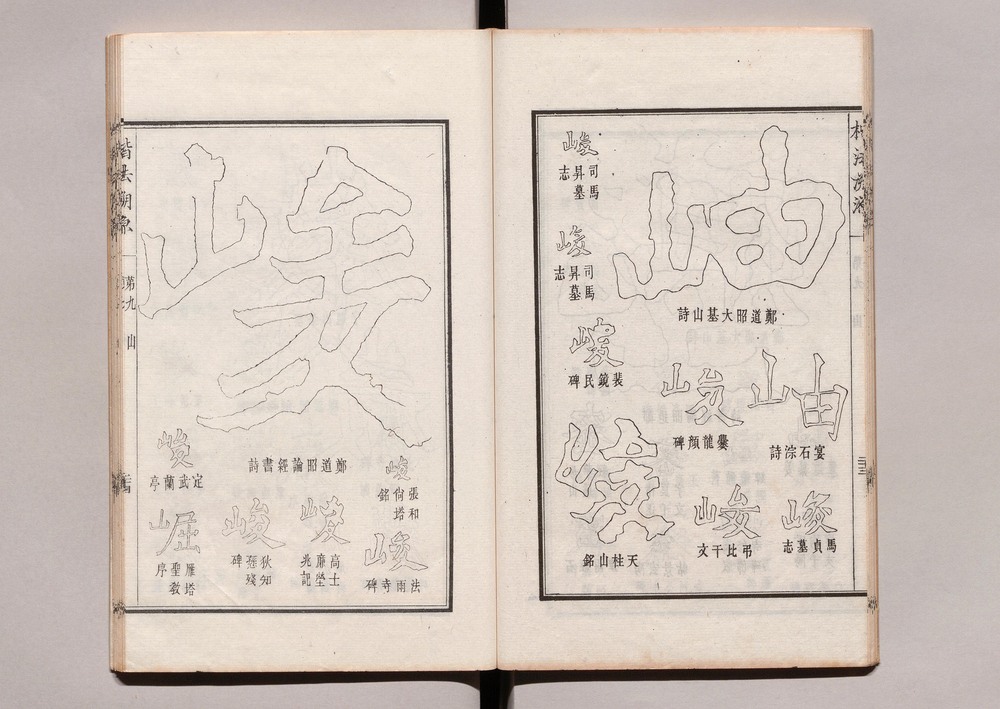 岫
鄭道昭大基山詩
岫
宴石淙詩
馬貞墓志
峻
爨龍顏碑
峻
弔比干文
峻
司馬昇墓志
峻
司馬昇墓志
峻
裴鏡民碑
峻
天柱山銘
峻
鄭道昭論經書詩
峻
張和尙塔銘
峻
法雨寺碑
峻
高士廉塋兆記
峻
狄知愻殘碑
峻
定武蘭亭
崛
雁塔聖教序
楷法溯原
第九
山